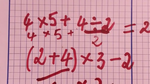 4×5+4÷2=2
4×5+4/2
(2+4)×3-2